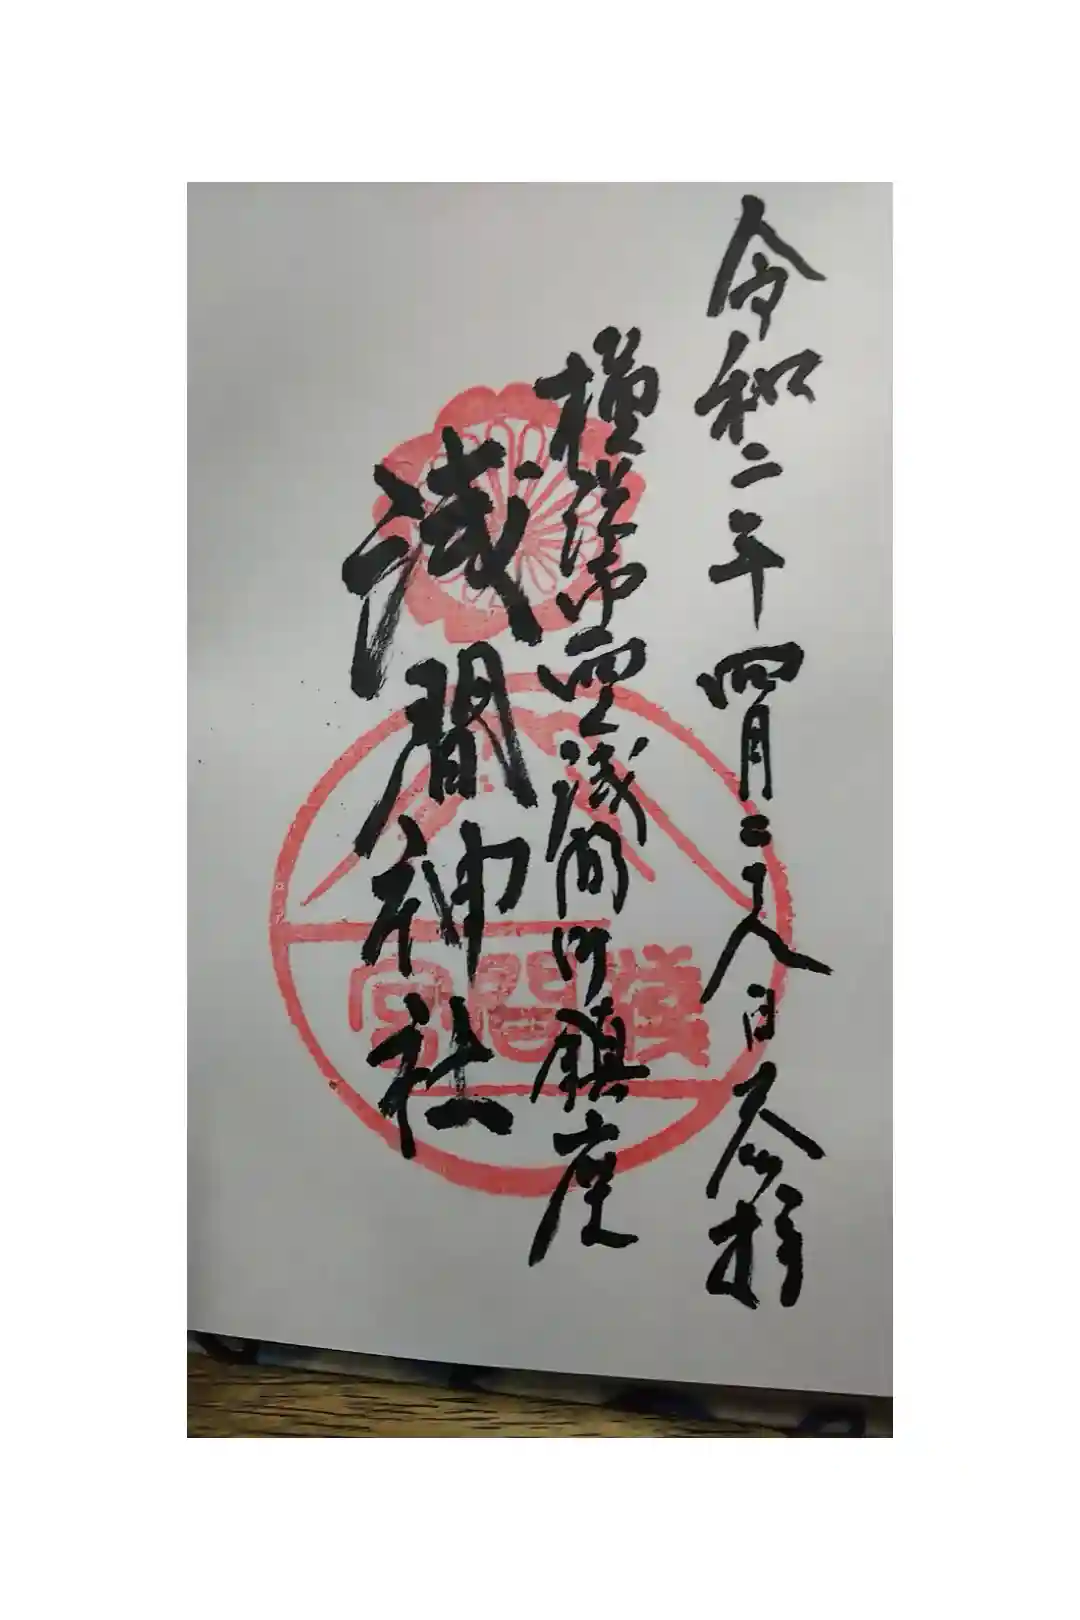 令和二年四月二十八日参拝
横浜市西区浅間町鎮座
浅間神社
浅間宮